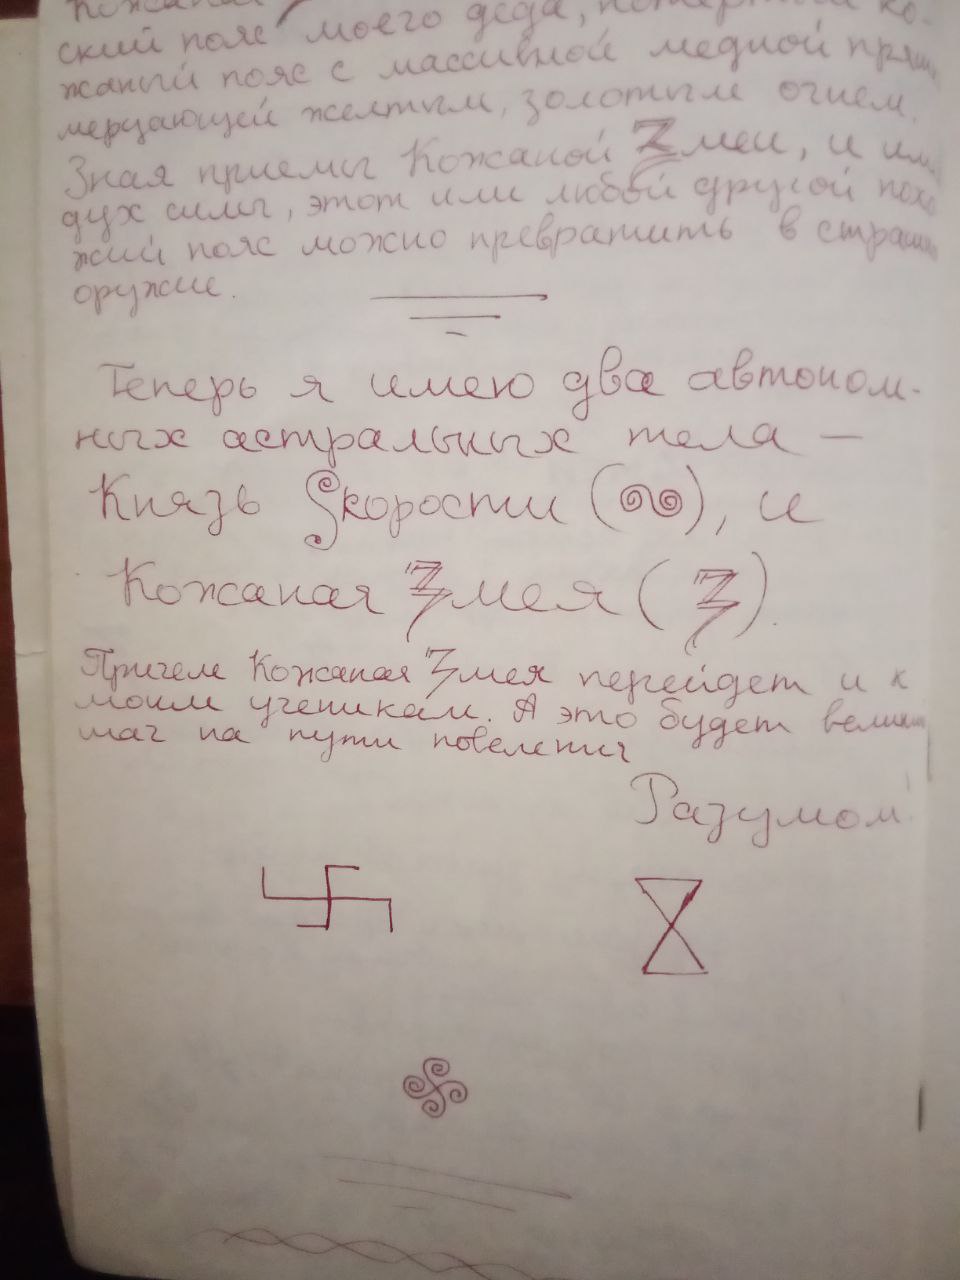 Кожаная
ский пояс моего деда, потертый ко-
жаный пояс с массивной медной
мерцающей желтым, золотым огнем.
Зная приемы Кожаной Змеи, и
дух силы, этот или любой другой
жий пояс можно превратить в
оружие.
Теперь я имею два автоном-
ных астральных тела —
Князь Скорости ( ), и
Кожаная Змея (З).
Причем Кожаная Змея перейдет и к
моим ученикам. А это будет
шаг на пути повеления
Разумом!